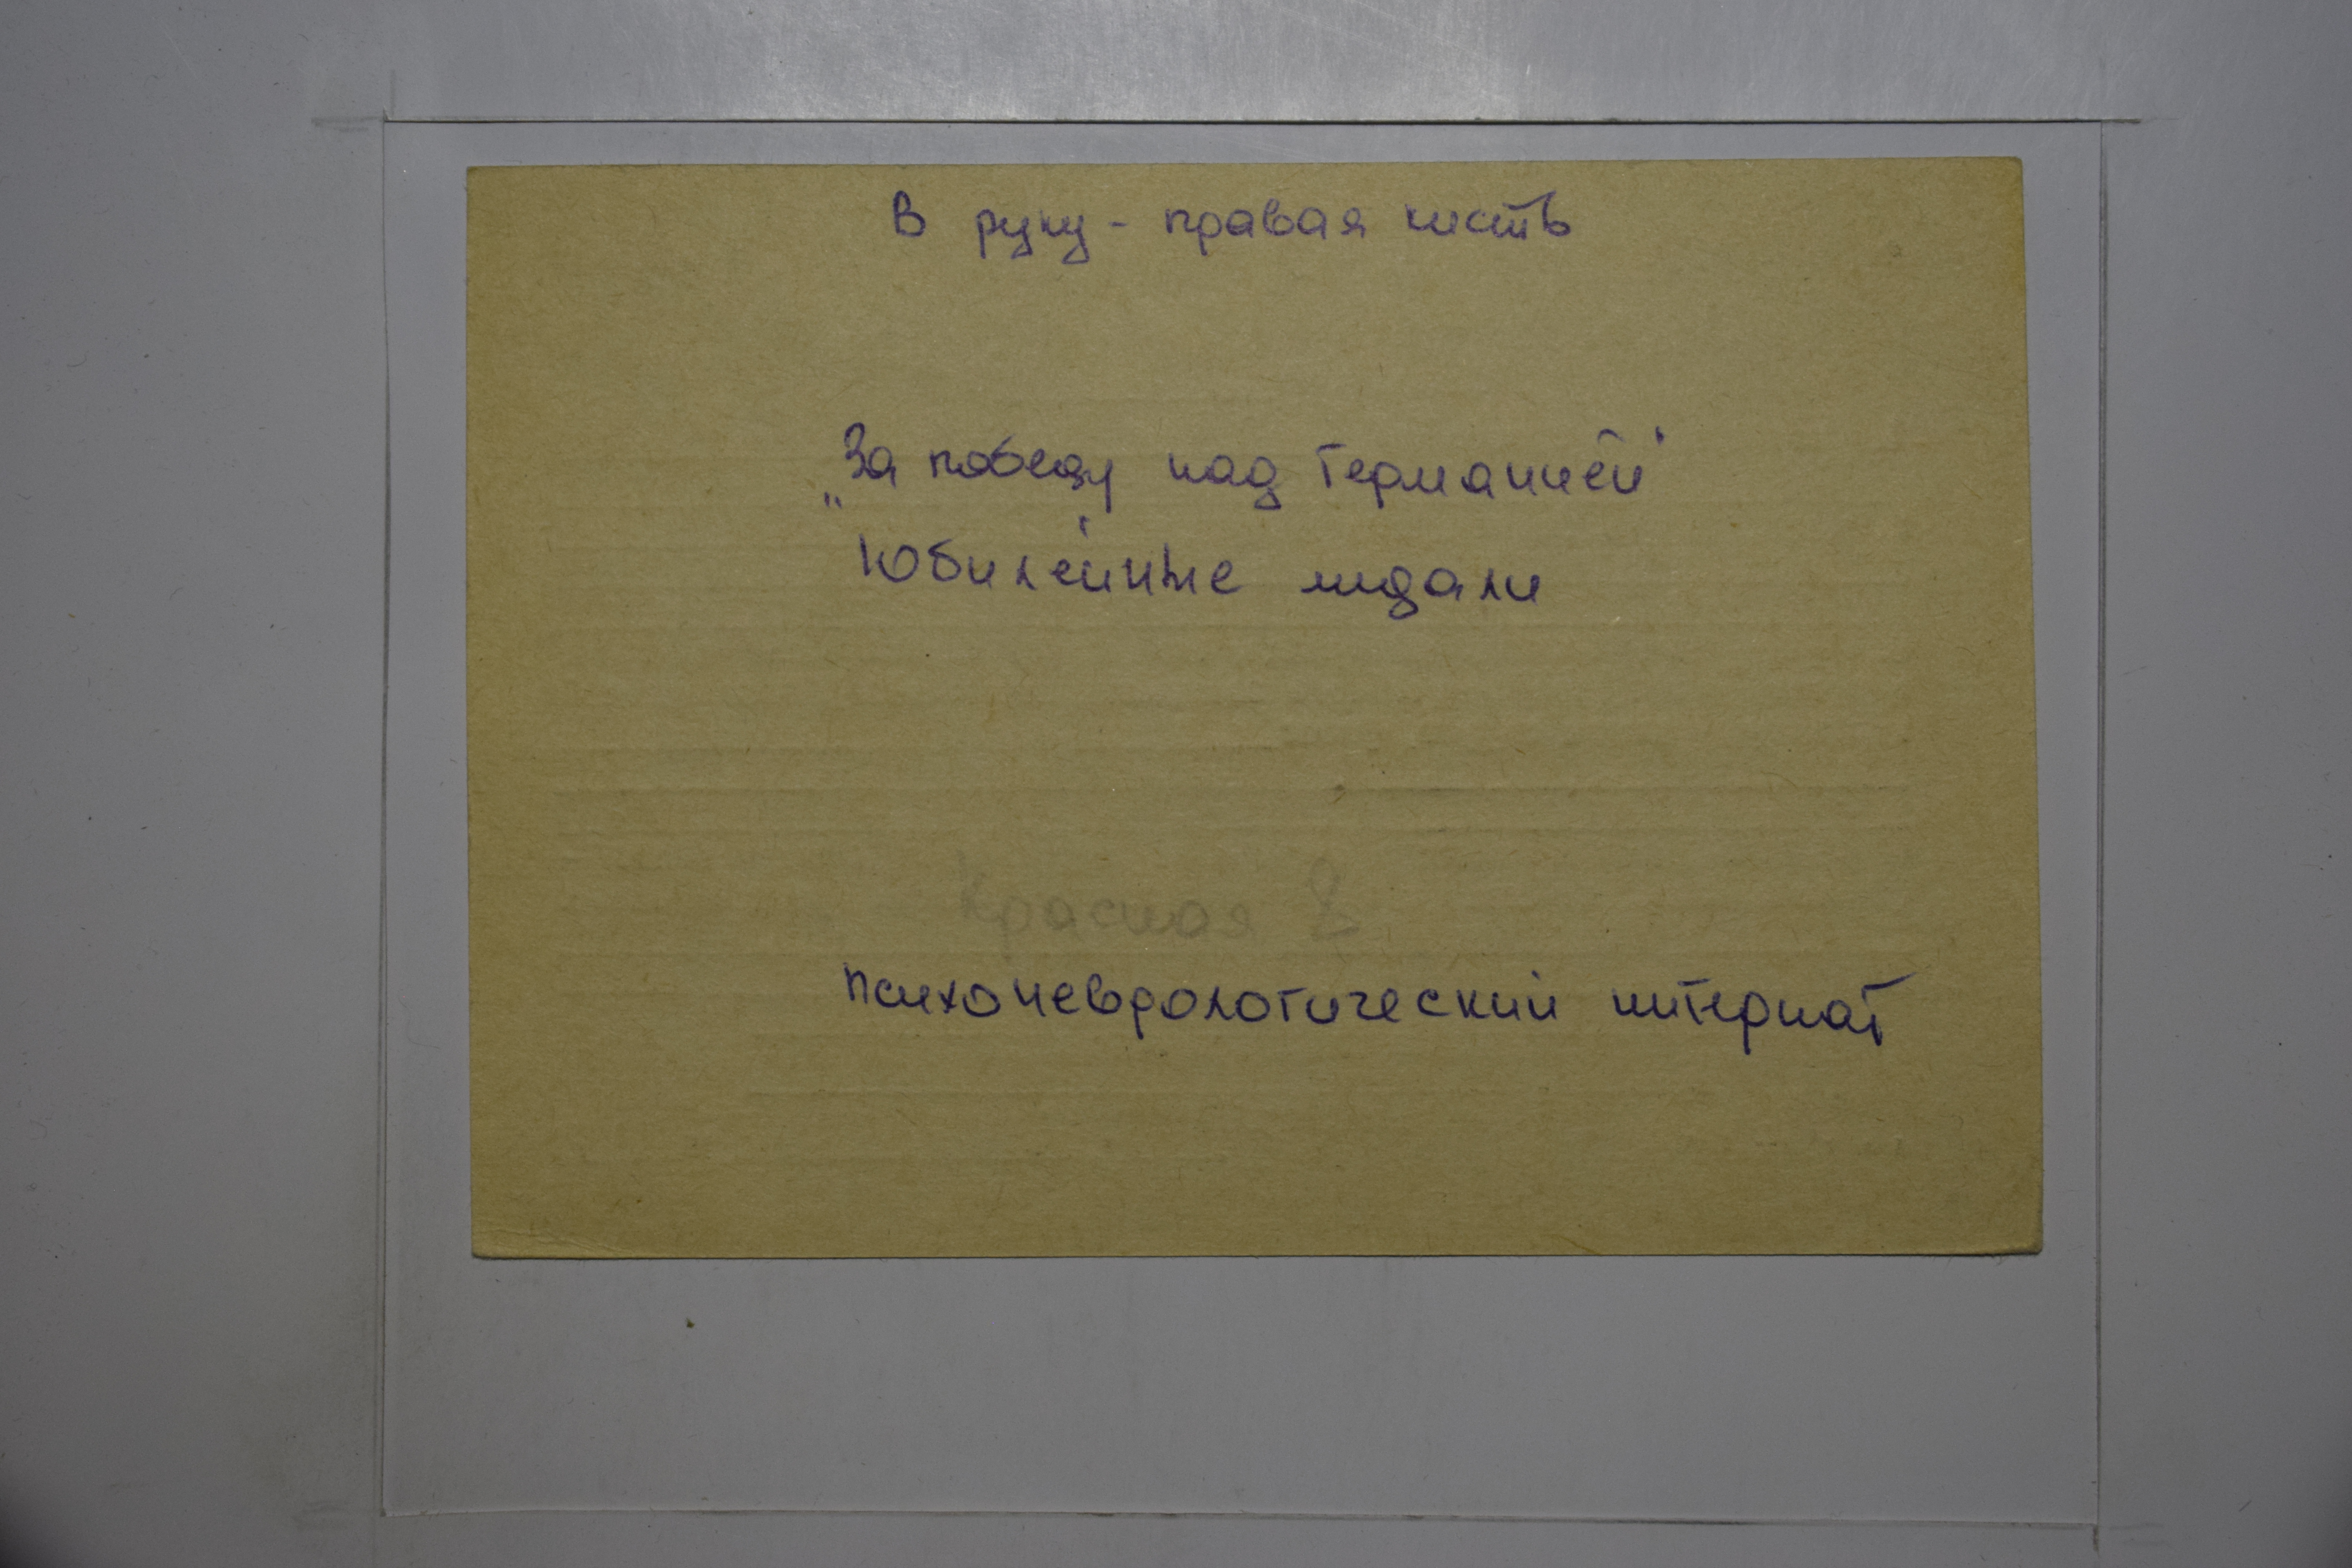 В руку - правая кисть
„За победу над Германией"
Юбилейные медали
Красная 2
психоневрологический интернат